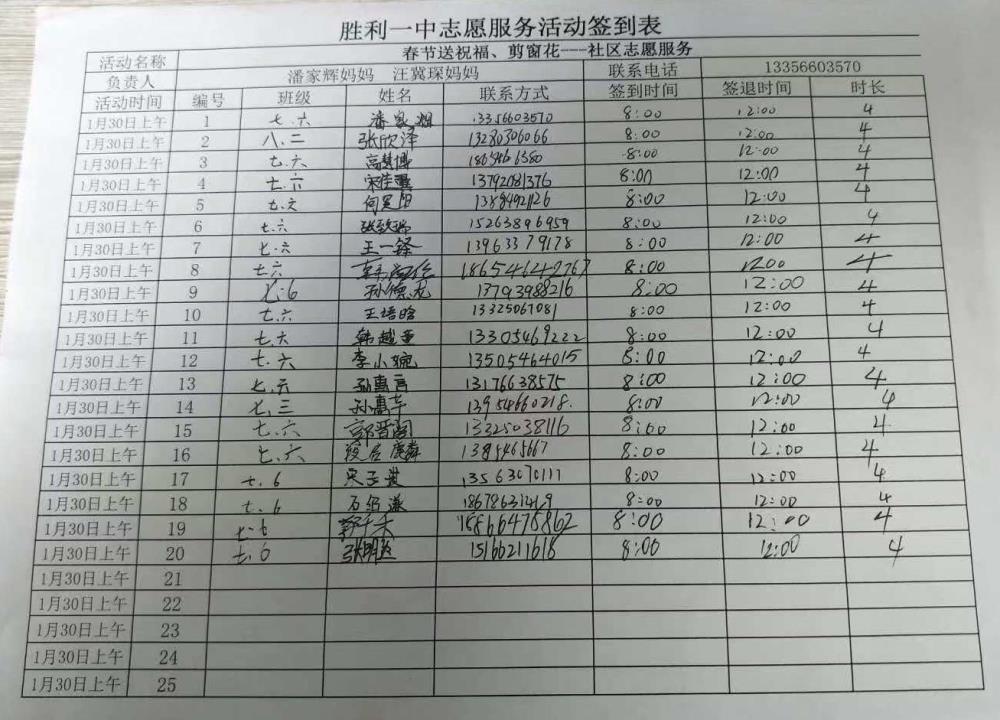 胜利一中志愿服务活动签到表
活动名称 春节送祝福、剪窗花---社区志愿服务
负责人 潘家辉妈妈 汪冀琛妈妈 联系电话 13356603570
活动时间 编号 班级 姓名 联系方式 签到时间 签退时间 时长
1月30日上午 1 七.六 潘家辉 13356603570 8:00 12:00 4
1月30日上午 2 八.二 张欣泽 13280306066 8:00 12:00 4
1月30日上午 3 七.六 8:00 12:00 4
1月30日上午 4 七.六 13792081376 8:00 12:00 4
1月30日上午 5 七.六 8:00 12:00 4
1月30日上午 6 七.六 15263896959 8:00 12:00 4
1月30日上午 7 七.六 王一铎 13963379178 8:00 12:00 4
1月30日上午 8 七六 18654642767 8:00 1200 4
1月30日上午 9 七.6 孙德龙 13793988216 8:00 12:00 4
1月30日上午 10 七.六 王培晗 13325067081 8:00 12:00 4
1月30日上午 11 七.六 韩越 13305469222 8:00 12:00 4
1月30日上午 12 七.六 李小婉 13505464015 8:00 12:00 4
1月30日上午 13 七.六 孙嘉言 13176638575 8:00 12:00 4
1月30日上午 14 七.三 孙嘉 13954660218. 8:00 12:00 4
1月30日上午 15 七.六 郭晋阁 13325038116 8:00 12:00 4
1月30日上午 16 七.六 8:00 12:00 4
1月30日上午 17 七.6 13563070111 8:00 12:00 4
1月30日上午 18 七.6 8:00 12:00 4
1月30日上午 19 七.6 8:00 12:00 4
1月30日上午 20 七.6 15166211616 8:00 12:00 4
1月30日上午 21
1月30日上午 22
1月30日上午 23
1月30日上午 24
1月30日上午 25